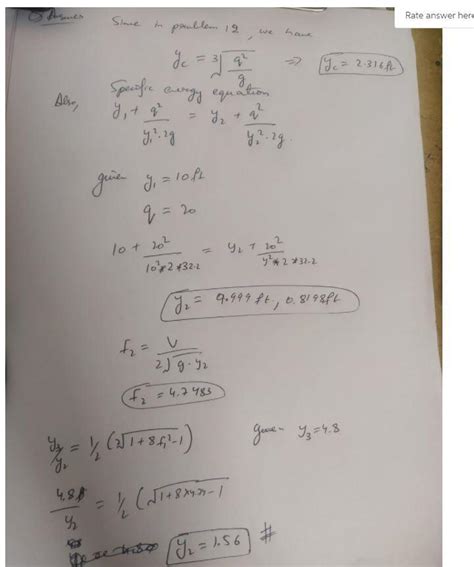 Rate answer here
Since in problem 12, we have
y_c = ∛(q²/g) ⇒ y_c = 2.316 ft
Specific energy equation
Also,
y₁ + q²/(y₁²·2g) = y₂ + q²/(y₂²·2g)
given y₁ = 10 ft
q = 20
10 + 20²/(10²*2*32.2) = y₂ + 20²/(y²*2*32.2)
y₂ = 9.999 ft, 0.8198 ft
f₂ = V/(2√(g·y₂))
f₂ = 4.7485
y₃/y₂ = 1/2 (2√(1+8f₁²-1)) given- y₃=4.8
4.8/y₂ = 1/2 (√(1+8×4×)-1
y₂ = 1.56 #